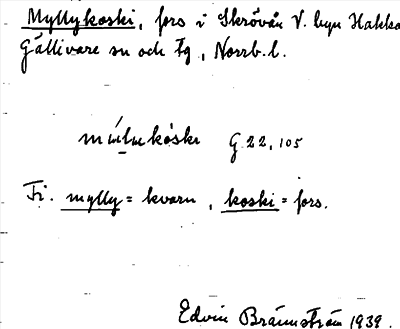 Myllykoski, fors i Skröván V. byn Hakka
Gällivare sn och tg, Norrb. l.
G 22, 105
Fi. mylly = kvarn, koski = fors.
Edvin Brännström 1939.